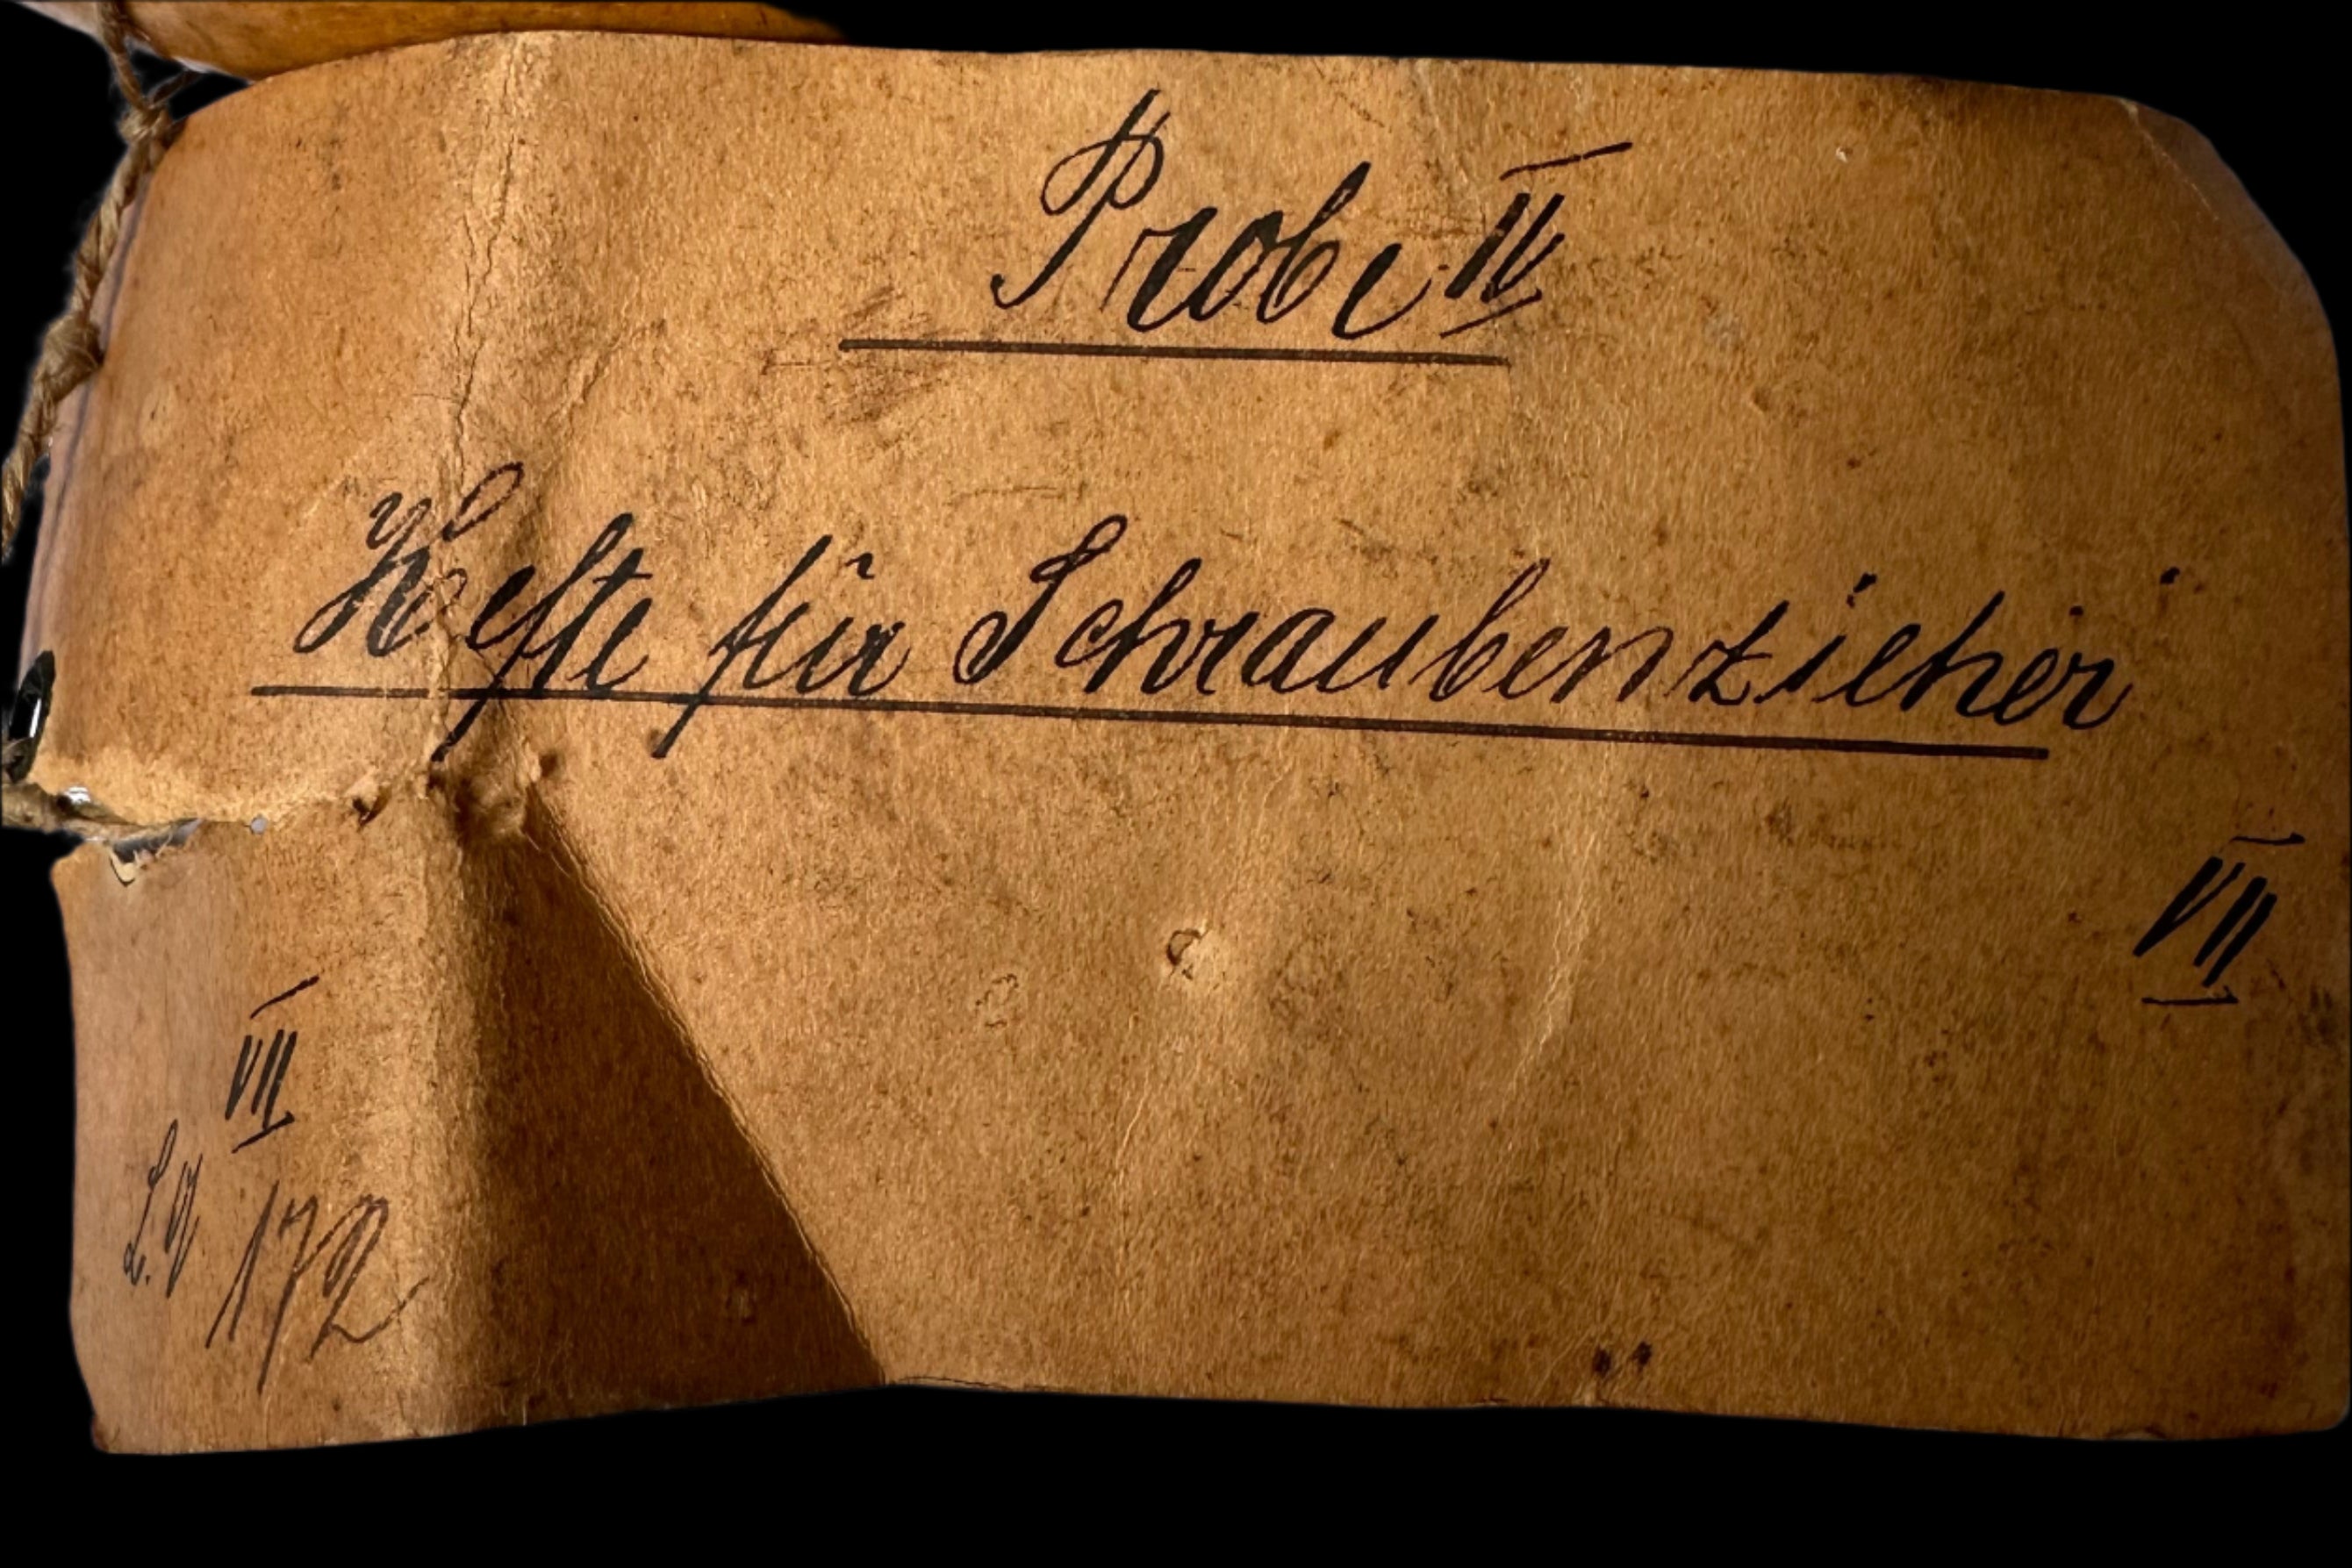 Probe IV
Hefte für Schraubenzieher
VII
VII
L.g. 172